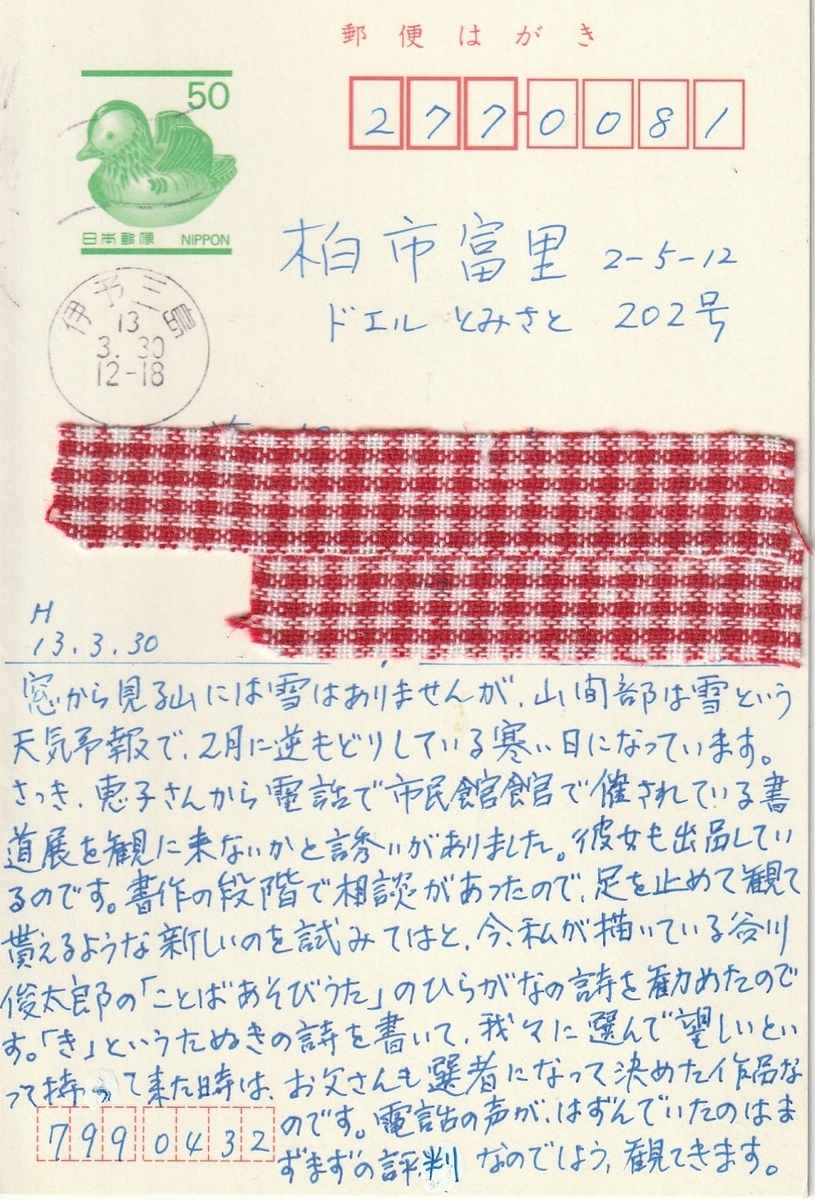 郵便はがき
50
日本郵便 NIPPON
2770081
柏市富里 2-5-12
ドエル とみさと 202号
伊予三島
13
3.30
12-18
H
13.3.30
窓から見る山には雪はありませんが、山間部は雪という
天気予報で、2月に逆もどりしている寒い日になっています。
さっき、恵子さんから電話で市民会館で催されている書
道展を観に来ないかと誘いがありました。彼女も出品してい
るのです。書作の段階で相談があったので、足を止めて観て
貰えるような新しいのを試みてはと、今、私が描いている谷川
俊太郎の「ことばあそびうた」のひらがなの詩を勧めたので
す。「き」というたぬきの詩を書いて、我々に選んで望しいとい
って持って来た時は、お父さんも選者になって決めた作品な
のです。電話の声が、はずんでいたのはま
ずまずの評判なのでしょう、観てきます。
7990432